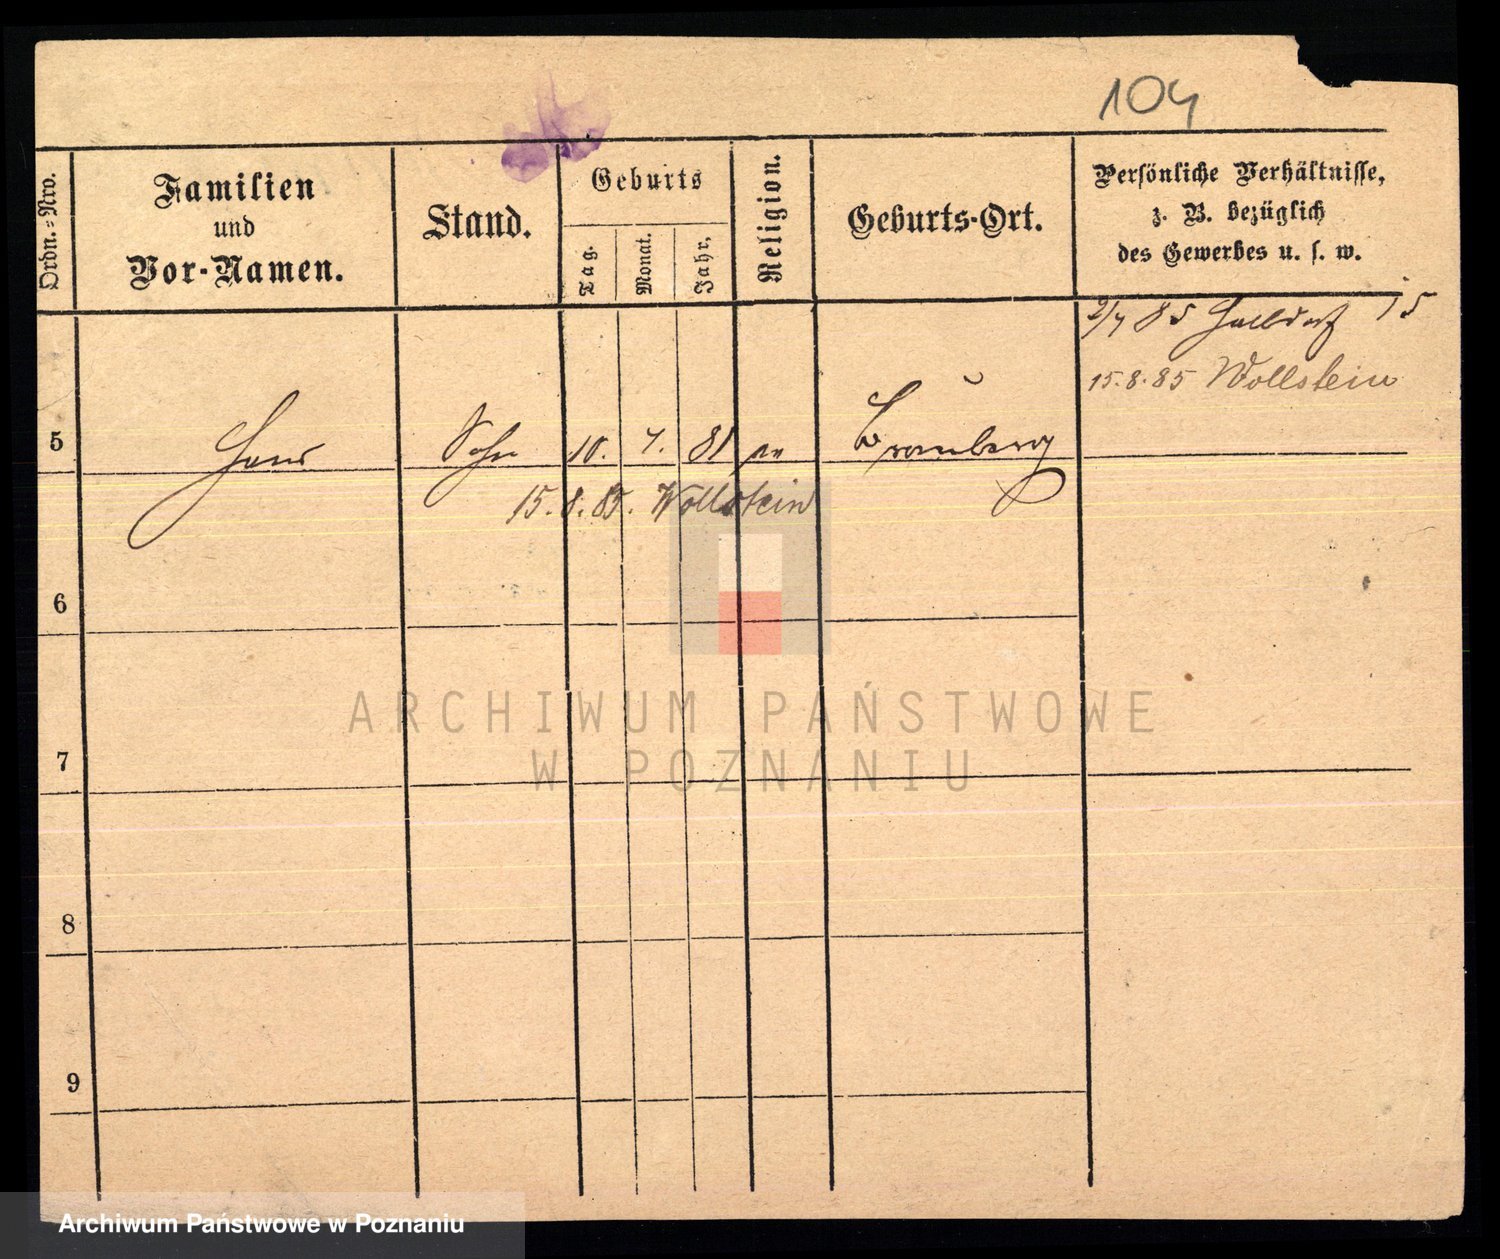 104
Ordn.=Nro.
Familien
und
Vor-Namen.
Stand.
Geburts
Tag.
Monat.
Jahr,
Religion.
Geburts-Ort.
Persönliche Verhältnisse,
z. B. bezüglich
des Gewerbes u. s. w.
2/7 85 15
15.8.85 Wollstein
5 Hans Sohn 10. 7. 81 Bromberg
15.8.85. Wollstein
6
ARCHIWUM PAŃSTWOWE
W POZNANIU
7
8
9
Archiwum Państwowe w Poznaniu